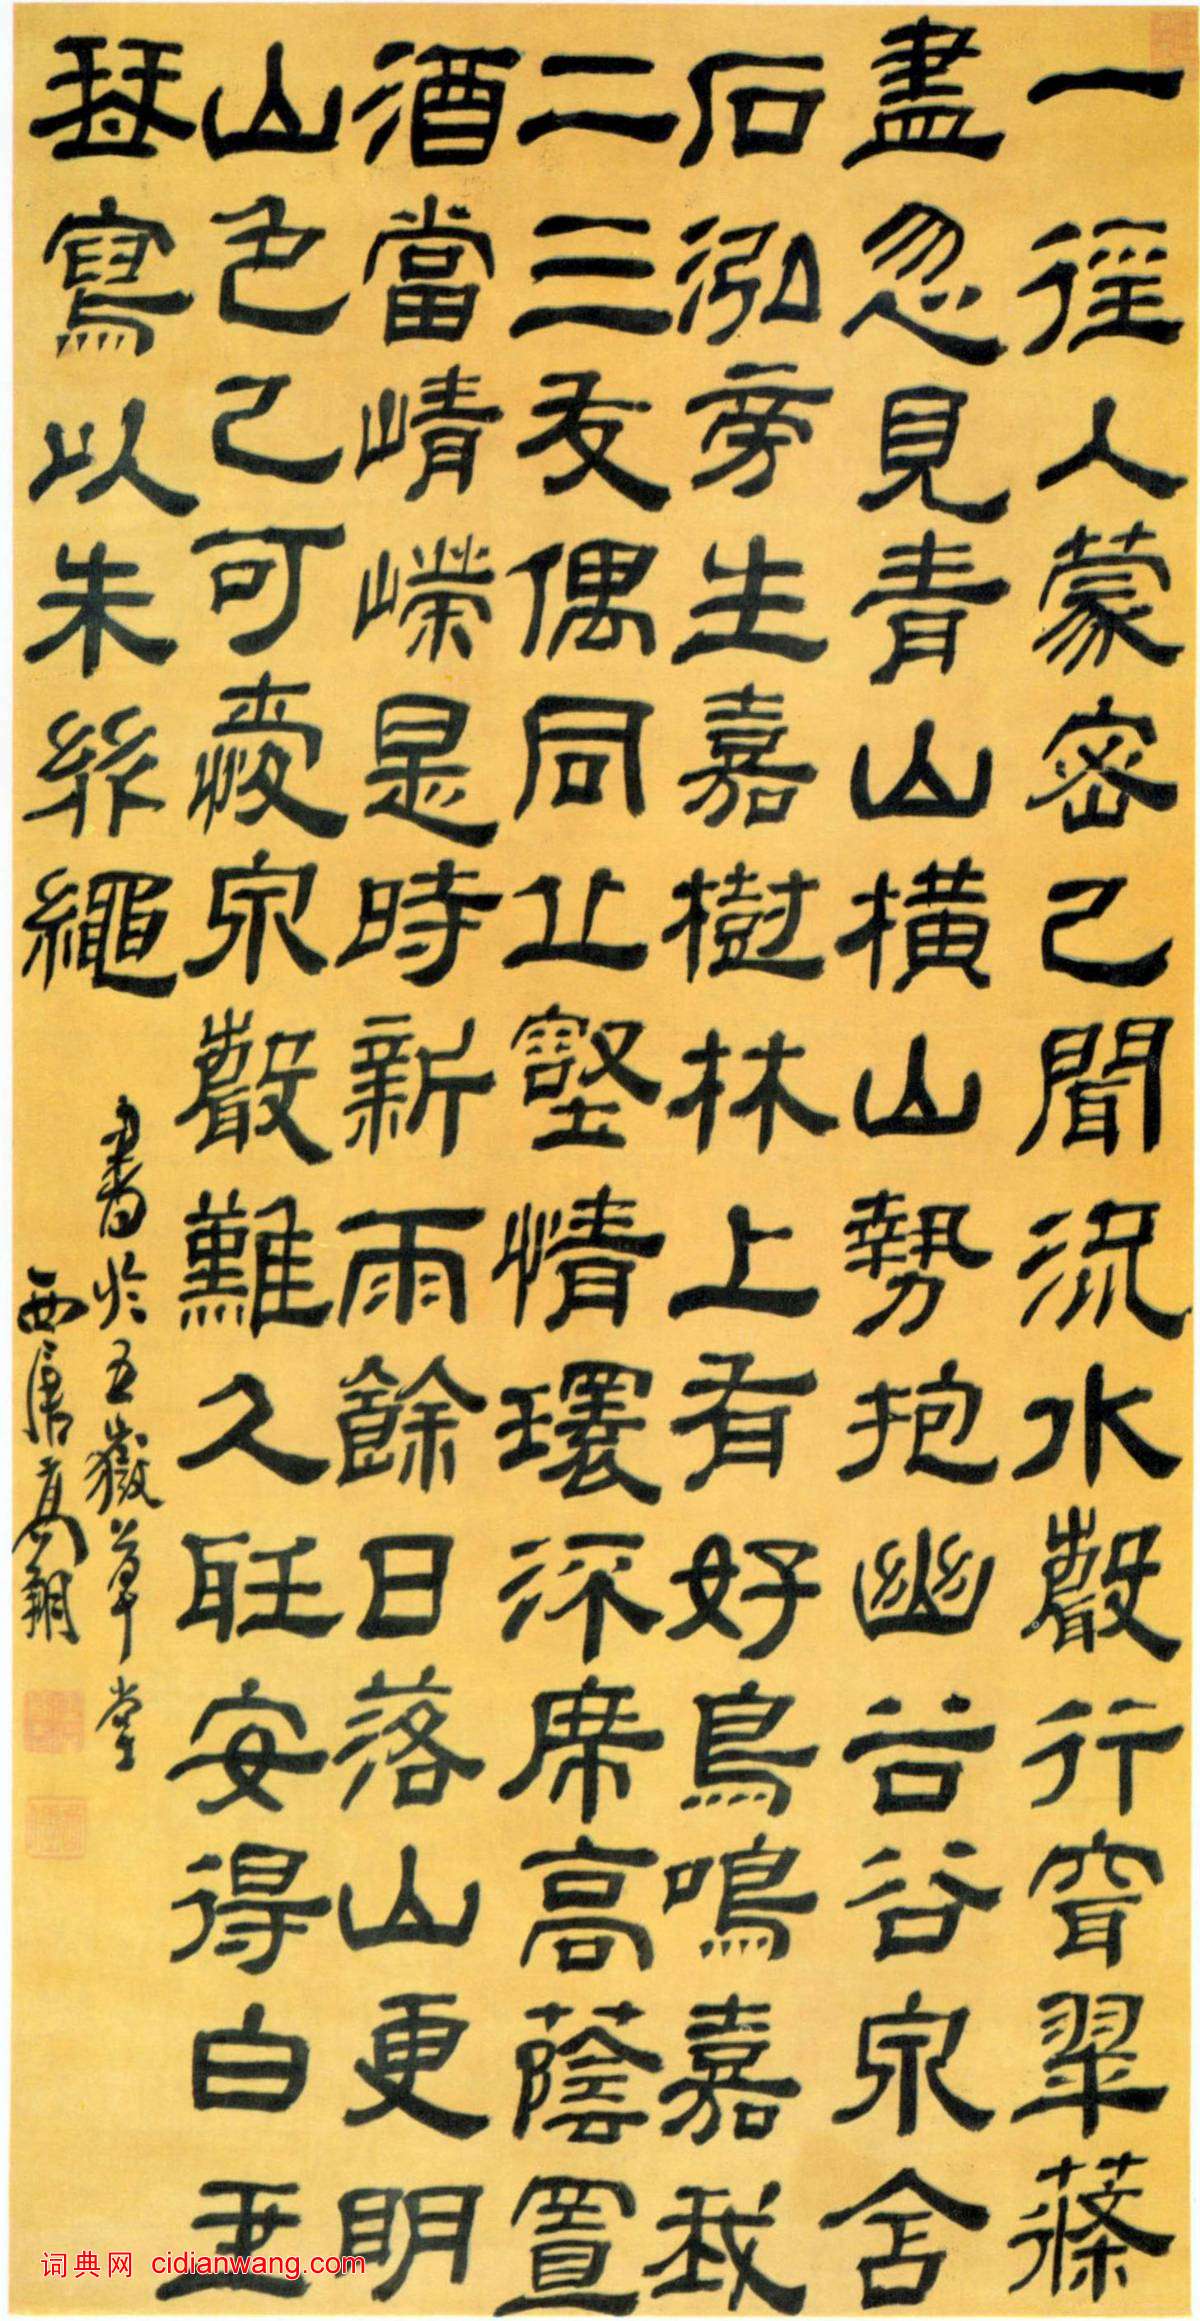 一徑人蒙密已聞流水聲行穿翠蓧
盡忽見青山橫山勢抱幽谷谷泉含
石泓旁生嘉樹林上有好鳥鳴嘉我
二三友偶同丘壑情環深席高蔭置
酒當崢嶸是時新雨餘日落山更明
山色已可愛泉聲難久聽安得白玉
琴寫以朱絲繩
書於五嶽草堂
西唐高翔
词典网 cidianwang.com